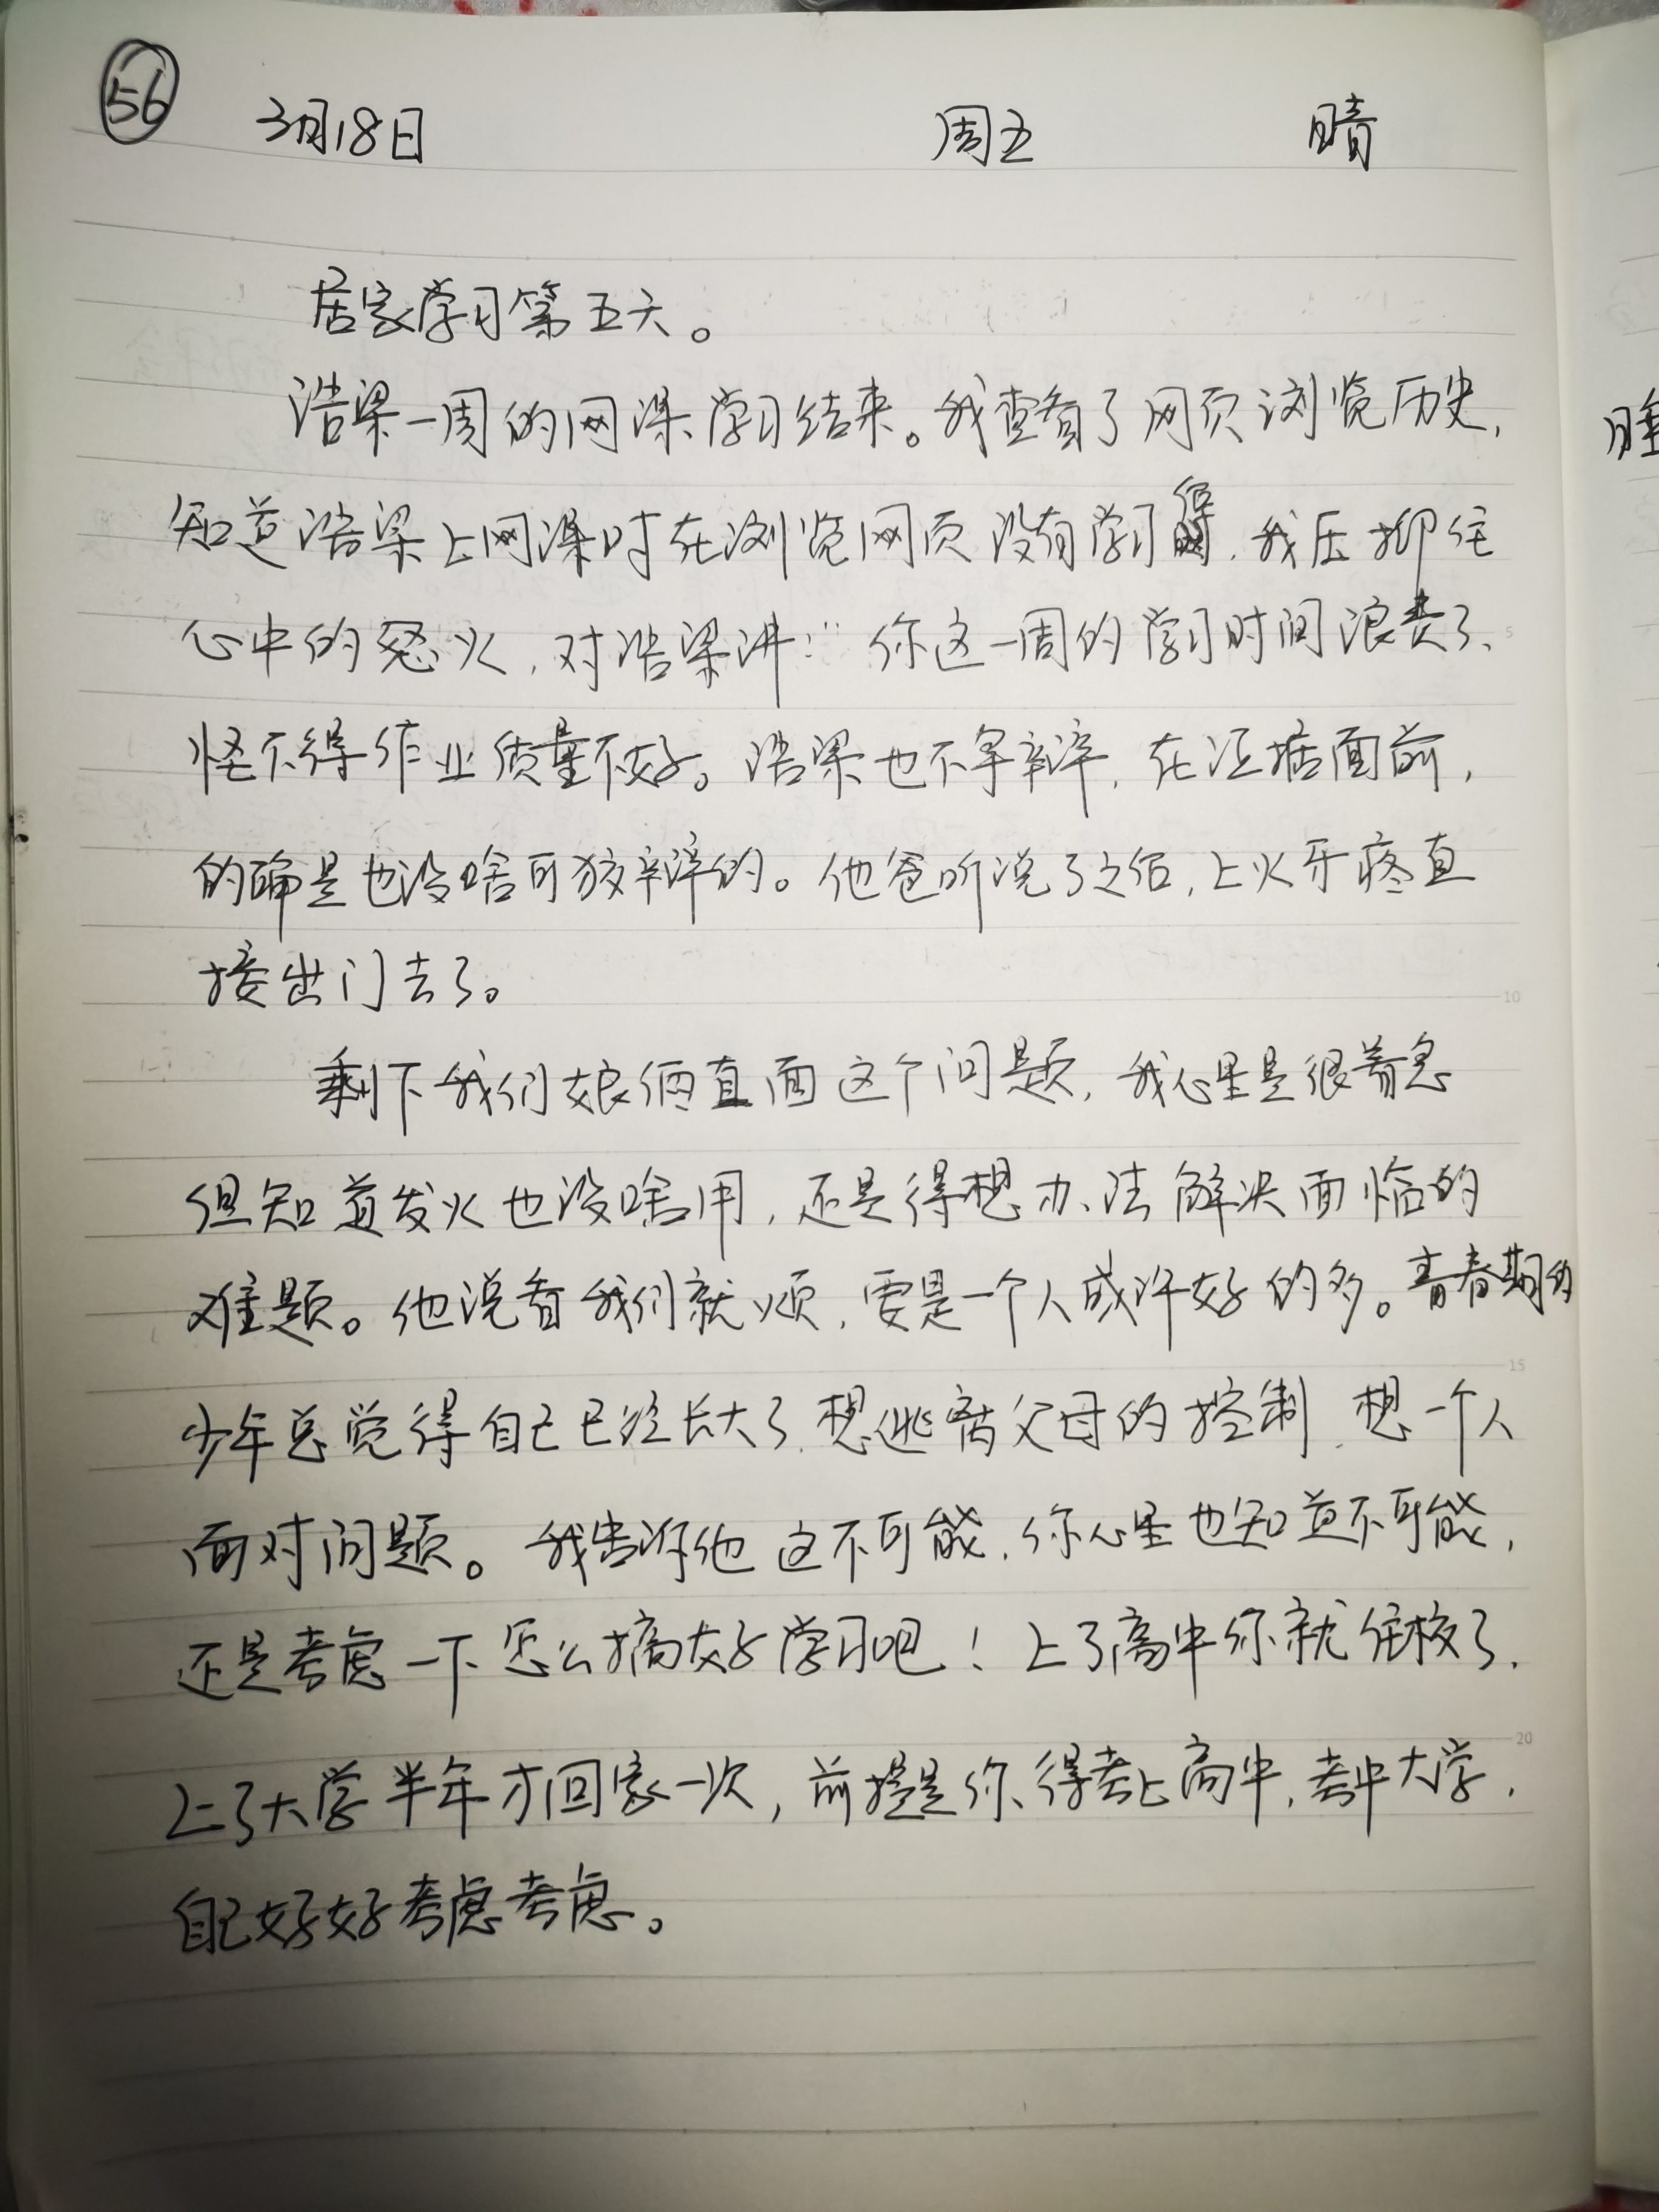 56 3月18日 周五 晴
居家学习第五天。
浩梁一周的网课学习结束。我查看了网页浏览历史,
知道浩梁上网课时在浏览网页没有学习,我压抑住
心中的怒火,对浩梁讲:“你这一周的学习时间浪费了、
怪不得作业质量不好。浩梁也不争辩,在证据面前,
的确是也没啥可狡辩的。他爸听说了之后,上火牙疼直
接出门去了。
剩下我们娘俩直面这个问题,我心里是很着急
但知道发火也没啥用,还是得想办法解决面临的
难题。他说看我们就烦,要是一个人或许好的多。青春期的
少年总觉得自己已经长大了,想逃离父母的控制,想一个人
面对问题。我告诉他这不可能,你心里也知道不可能,
还是考虑一下怎么搞好学习吧!上了高中你就住校了,
上了大学半年才回家一次,前提是你得考上高中,考中大学,
自己好好考虑考虑。
10
15
20